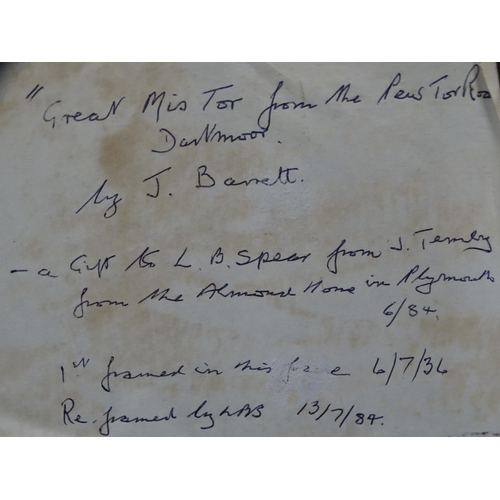 "Great Mis Tor from the Pew Tor Roa
Dartmoor.
by J. Barrett.
- a Gift to L. B. Spear from J.
from the Almond Home in Plymouth
6/84.
1st framed in this frame 6/7/36
Re.framed by LBS 13/7/84.